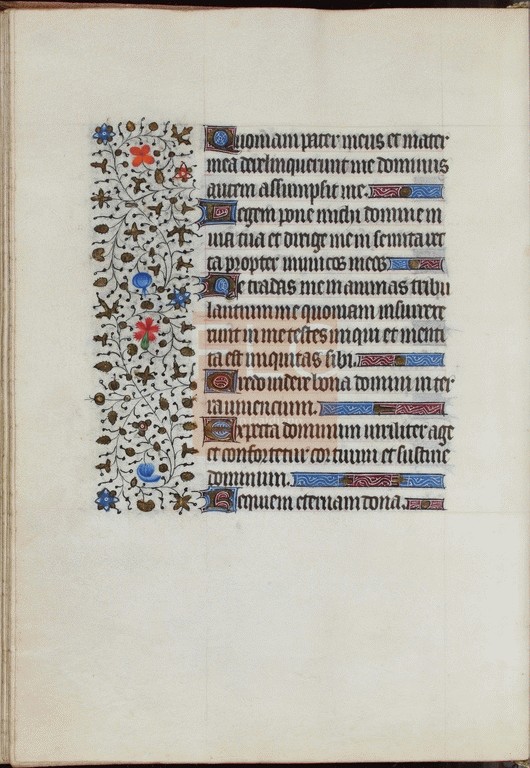 Quoniam pater meus et mater
mea dereliquerunt me dominus
autem assumpsit me.
Legem pone michi domine in
uia tua et dirige me in semita rec
ta propter inimicos meos
Ne tradas me in animas tribu
lantium me quoniam insurrexe
runt in me testes iniqui et menti
ta est iniquitas sibi.
Credo uidere bona domini in ter
ra uiuencium.
Expecta dominum uiriliter age
et confortetur cor tuum et sustine
dominum.
Requiem eternam dona.